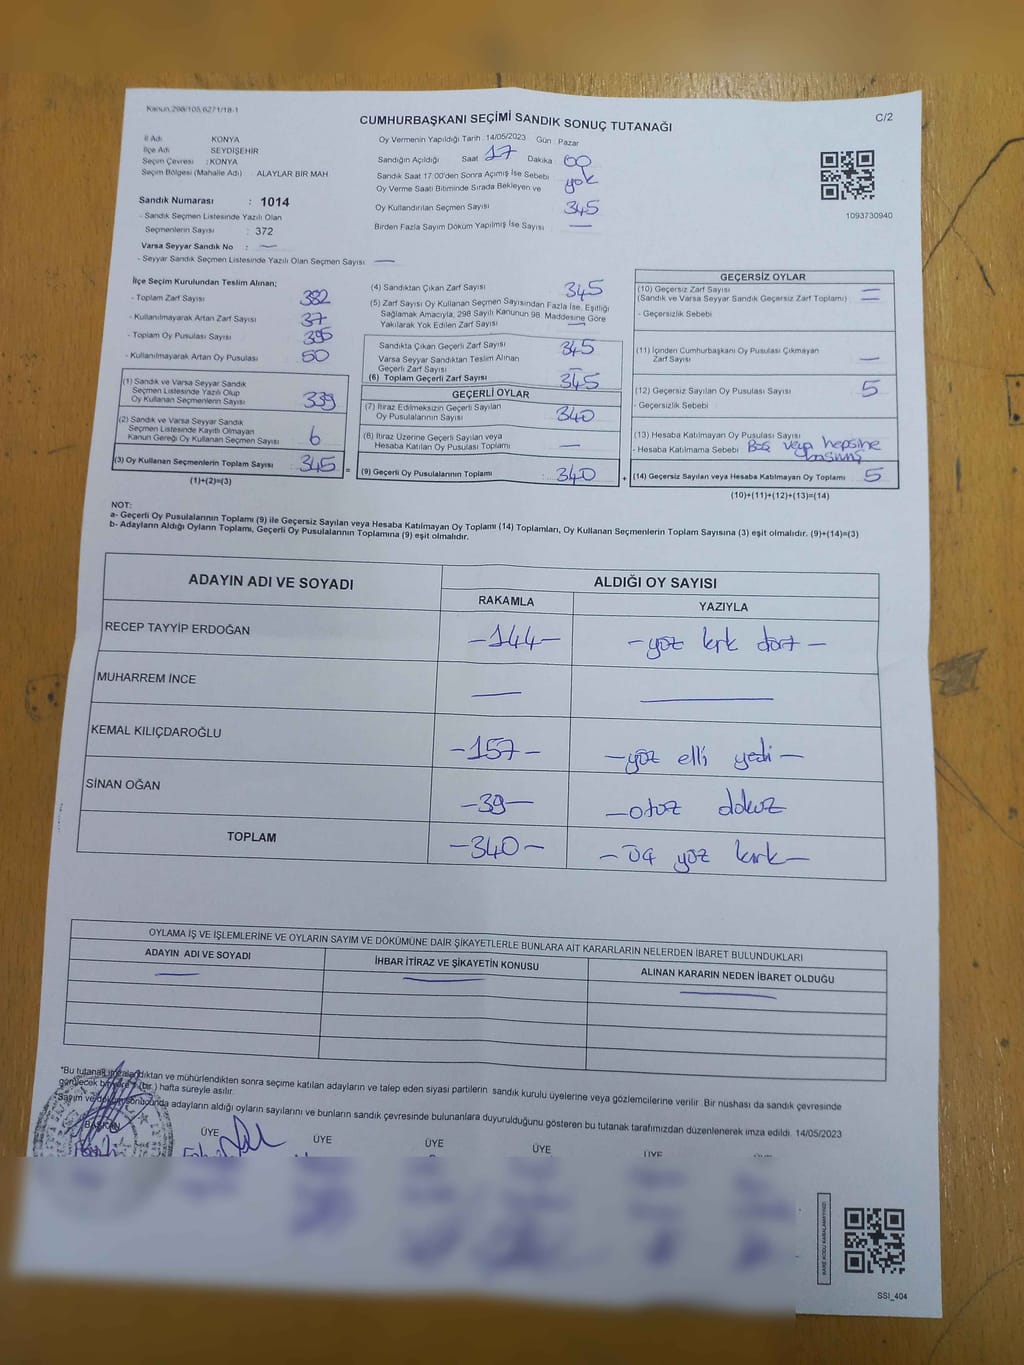 Kanun 298/105,6271/18-1
CUMHURBAŞKANI SEÇİMİ SANDIK SONUÇ TUTANAĞI
C/2
İl Adı KONYA
İlçe Adı SEYDİŞEHİR
Seçim Çevresi : KONYA
Seçim Bölgesi (Mahalle Adı) ALAYLAR BİR MAH
Sandık Numarası : 1014
- Sandık Seçmen Listesinde Yazılı Olan
Seçmenlerin Sayısı : 372
Varsa Seyyar Sandık No : —
- Seyyar Sandık Seçmen Listesinde Yazılı Olan Seçmen Sayısı —
Oy Vermenin Yapıldığı Tarih 14/05/2023 Gün Pazar
Sandığın Açıldığı Saat 17 Dakika 00
Sandık Saat 17:00'den Sonra Açımış İse Sebebi yok
Oy Verme Saati Bitiminde Sırada Bekleyen ve
Oy Kullandırılan Seçmen Sayısı 345
Birden Fazla Sayım Döküm Yapılmış İse Sayısı —
1093730940
İlçe Seçim Kurulundan Teslim Alınan;
- Toplam Zarf Sayısı 382
- Kullanılmayarak Artan Zarf Sayısı 37
- Toplam Oy Pusulası Sayısı 395
- Kullanılmayarak Artan Oy Pusulası 50
(1) Sandık ve Varsa Seyyar Sandık
Seçmen Listesinde Yazılı Olup
Oy Kullanan Seçmenlerin Sayısı 339
(2) Sandık ve Varsa Seyyar Sandık
Seçmen Listesinde Kayıtlı Olmayan
Kanun Gereği Oy Kullanan Seçmen Sayısı 6
(3) Oy Kullanan Seçmenlerin Toplam Sayısı 345 =
(1)+(2)=(3)
(4) Sandıktan Çıkan Zarf Sayısı 345
(5) Zarf Sayısı Oy Kullanan Seçmen Sayısından Fazla İse, Eşitliği
Sağlamak Amacıyla, 298 Sayılı Kanunun 98. Maddesine Göre
Yakılarak Yok Edilen Zarf Sayısı —
Sandıkta Çıkan Geçerli Zarf Sayısı 345
Varsa Seyyar Sandıktan Teslim Alınan
Geçerli Zarf Sayısı —
(6) Toplam Geçerli Zarf Sayısı 345
GEÇERLİ OYLAR
(7) İtiraz Edilmeksizin Geçerli Sayılan
Oy Pusulalarının Sayısı 340
(8) İtiraz Üzerine Geçerli Sayılan veya
Hesaba Katılan Oy Pusulası Toplamı —
(9) Geçerli Oy Pusulalarının Toplamı 340 +
GEÇERSİZ OYLAR
(10) Geçersiz Zarf Sayısı
(Sandık ve Varsa Seyyar Sandık Geçersiz Zarf Toplamı) —
- Geçersizlik Sebebi
(11) İçinden Cumhurbaşkanı Oy Pusulası Çıkmayan
Zarf Sayısı —
(12) Geçersiz Sayılan Oy Pusulası Sayısı 5
- Geçersizlik Sebebi
(13) Hesaba Katılmayan Oy Pusulası Sayısı
- Hesaba Katılmama Sebebi Boş veya hepsine
basılmış
(14) Geçersiz Sayılan veya Hesaba Katılmayan Oy Toplamı 5
(10)+(11)+(12)+(13)=(14)
NOT:
a- Geçerli Oy Pusulalarının Toplamı (9) ile Geçersiz Sayılan veya Hesaba Katılmayan Oy Toplamı (14) Toplamları, Oy Kullanan Seçmenlerin Toplam Sayısına (3) eşit olmalıdır. (9)+(14)=(3)
b- Adayların Aldığı Oyların Toplamı, Geçerli Oy Pusulalarının Toplamına (9) eşit olmalıdır.
ADAYIN ADI VE SOYADI ALDIĞI OY SAYISI
RAKAMLA YAZIYLA
RECEP TAYYİP ERDOĞAN -144- -yüz kırk dört-
MUHARREM İNCE — —
KEMAL KILIÇDAROĞLU -157- -yüz elli yedi-
SİNAN OĞAN -39- -otuz dokuz
TOPLAM -340- -üç yüz kırk-
OYLAMA İŞ VE İŞLEMLERİNE VE OYLARIN SAYIM VE DÖKÜMÜNE DAİR ŞİKAYETLERLE BUNLARA AİT KARARLARIN NELERDEN İBARET BULUNDUKLARI
ADAYIN ADI VE SOYADI İHBAR İTİRAZ VE ŞİKAYETİN KONUSU ALINAN KARARIN NEDEN İBARET OLDUĞU
— — —
*Bu tutanak imzalandıktan ve mühürlendikten sonra seçime katılan adayların ve talep eden siyasi partilerin sandık kurulu üyelerine veya gözlemcilerine verilir. Bir nüshası da sandık çevresinde
görülecek bir yere 1 (bir) hafta süreyle asılır.
*Sayım ve döküm sonucunda adayların aldığı oyların sayılarını ve bunların sandık çevresinde bulunanlara duyurulduğunu gösteren bu tutanak tarafımızdan düzenlenerek imza edildi. 14/05/2023
BAŞKAN ÜYE ÜYE ÜYE ÜYE ÜYE
KARE KODU KARALAMAYINIZ!
SSI_404